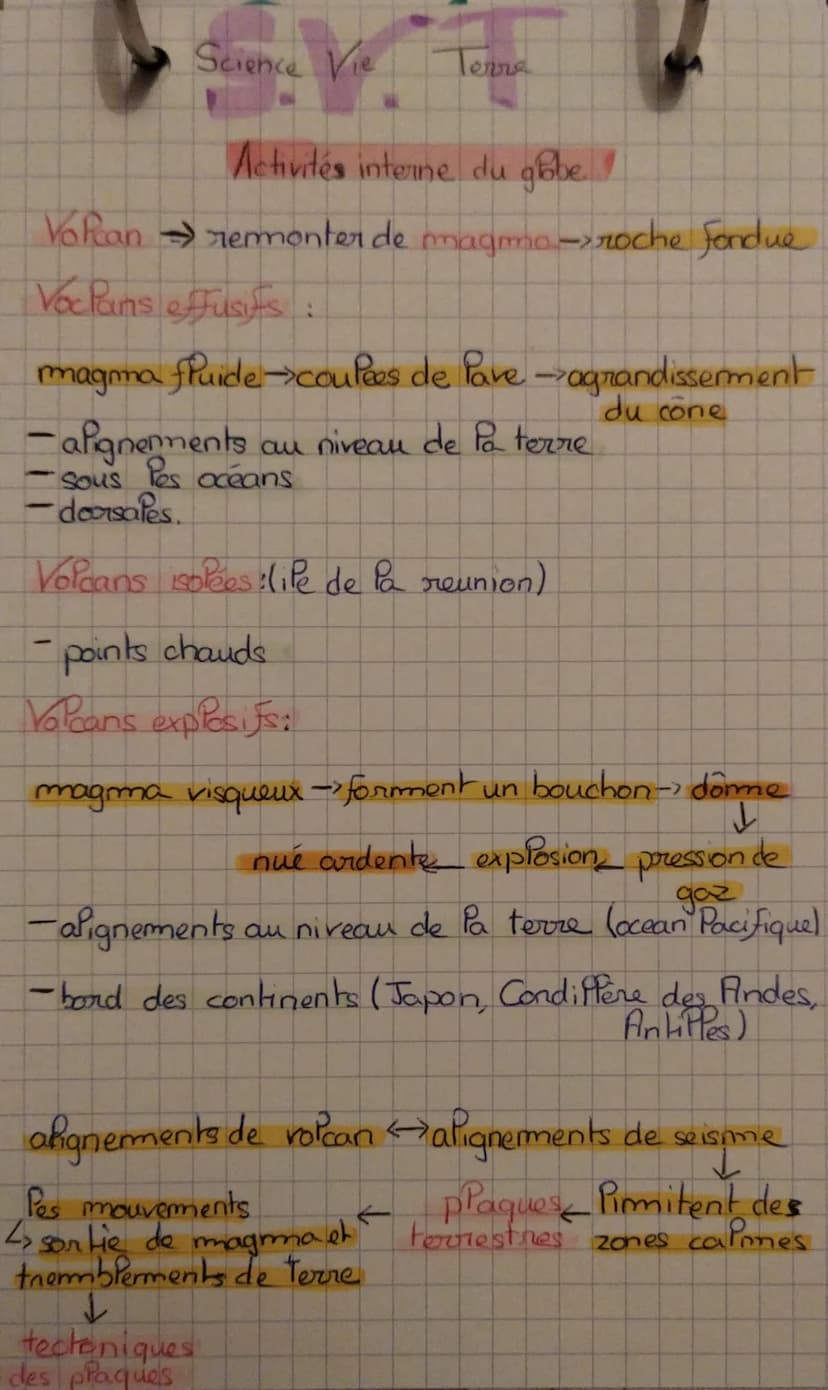 S.V.T
Science Vie Terre
Activités interne du globe !
Volcan → remonter de magma → roche fondue
Voclans effusifs :
magma fluide → coulées de lave → agrandissement
du cône
- alignements au niveau de la terre
- sous les océans
- dorsales.
Volcans isolées : (ile de la reunion)
- points chauds
Volcans explosifs :
magma visqueux → forment un bouchon → dôme
↓
nué ardente ← explosion ← pression de
gaz
- alignements au niveau de la terre (ocean Pacifique)
- bord des continents (Japon, Condillère des Andes,
Antilles)
alignements de volcan ↔ alignements de seisme
↓
les mouvements ← plaques ← limitent des
↳ sortie de magma et terrestres zones calmes
tremblements de terre
↓
tectoniques
des plaques